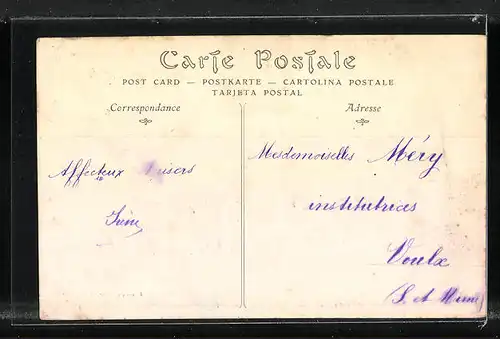 Carte Postale
POST CARD — POSTKARTE — CARTOLINA POSTALE
TARJETA POSTAL
Correspondance
Adresse
Affectueux Baisers
Mesdemoiselles Méry
institutrices
Voulx
(S. et Marne)